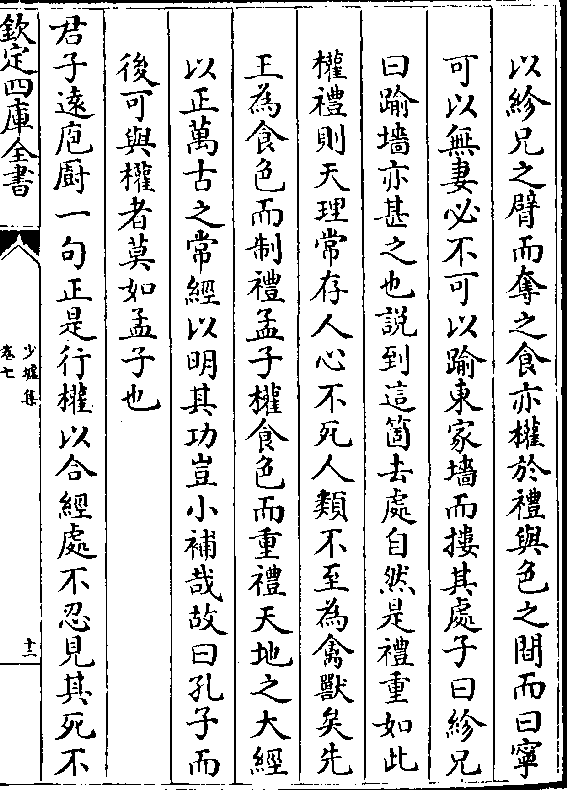 以紾兄之臂而奪之食亦權於禮與色之間而曰寧
可以無妻必不可以踰東家墻而摟其處子曰紾兄
曰踰墻亦甚之也説到這箇去處自然是禮重如此
權禮則天理常存人心不死人類不至為禽獸矣先
王為食色而制禮孟子權食色而重禮天地之大經
以正萬古之常經以明其功豈小補哉故曰孔子而
後可與權者莫如孟子也
君子遠庖厨一句正是行權以合經處不忍見其死不
欽定四庫全書
少墟集
卷七
十二